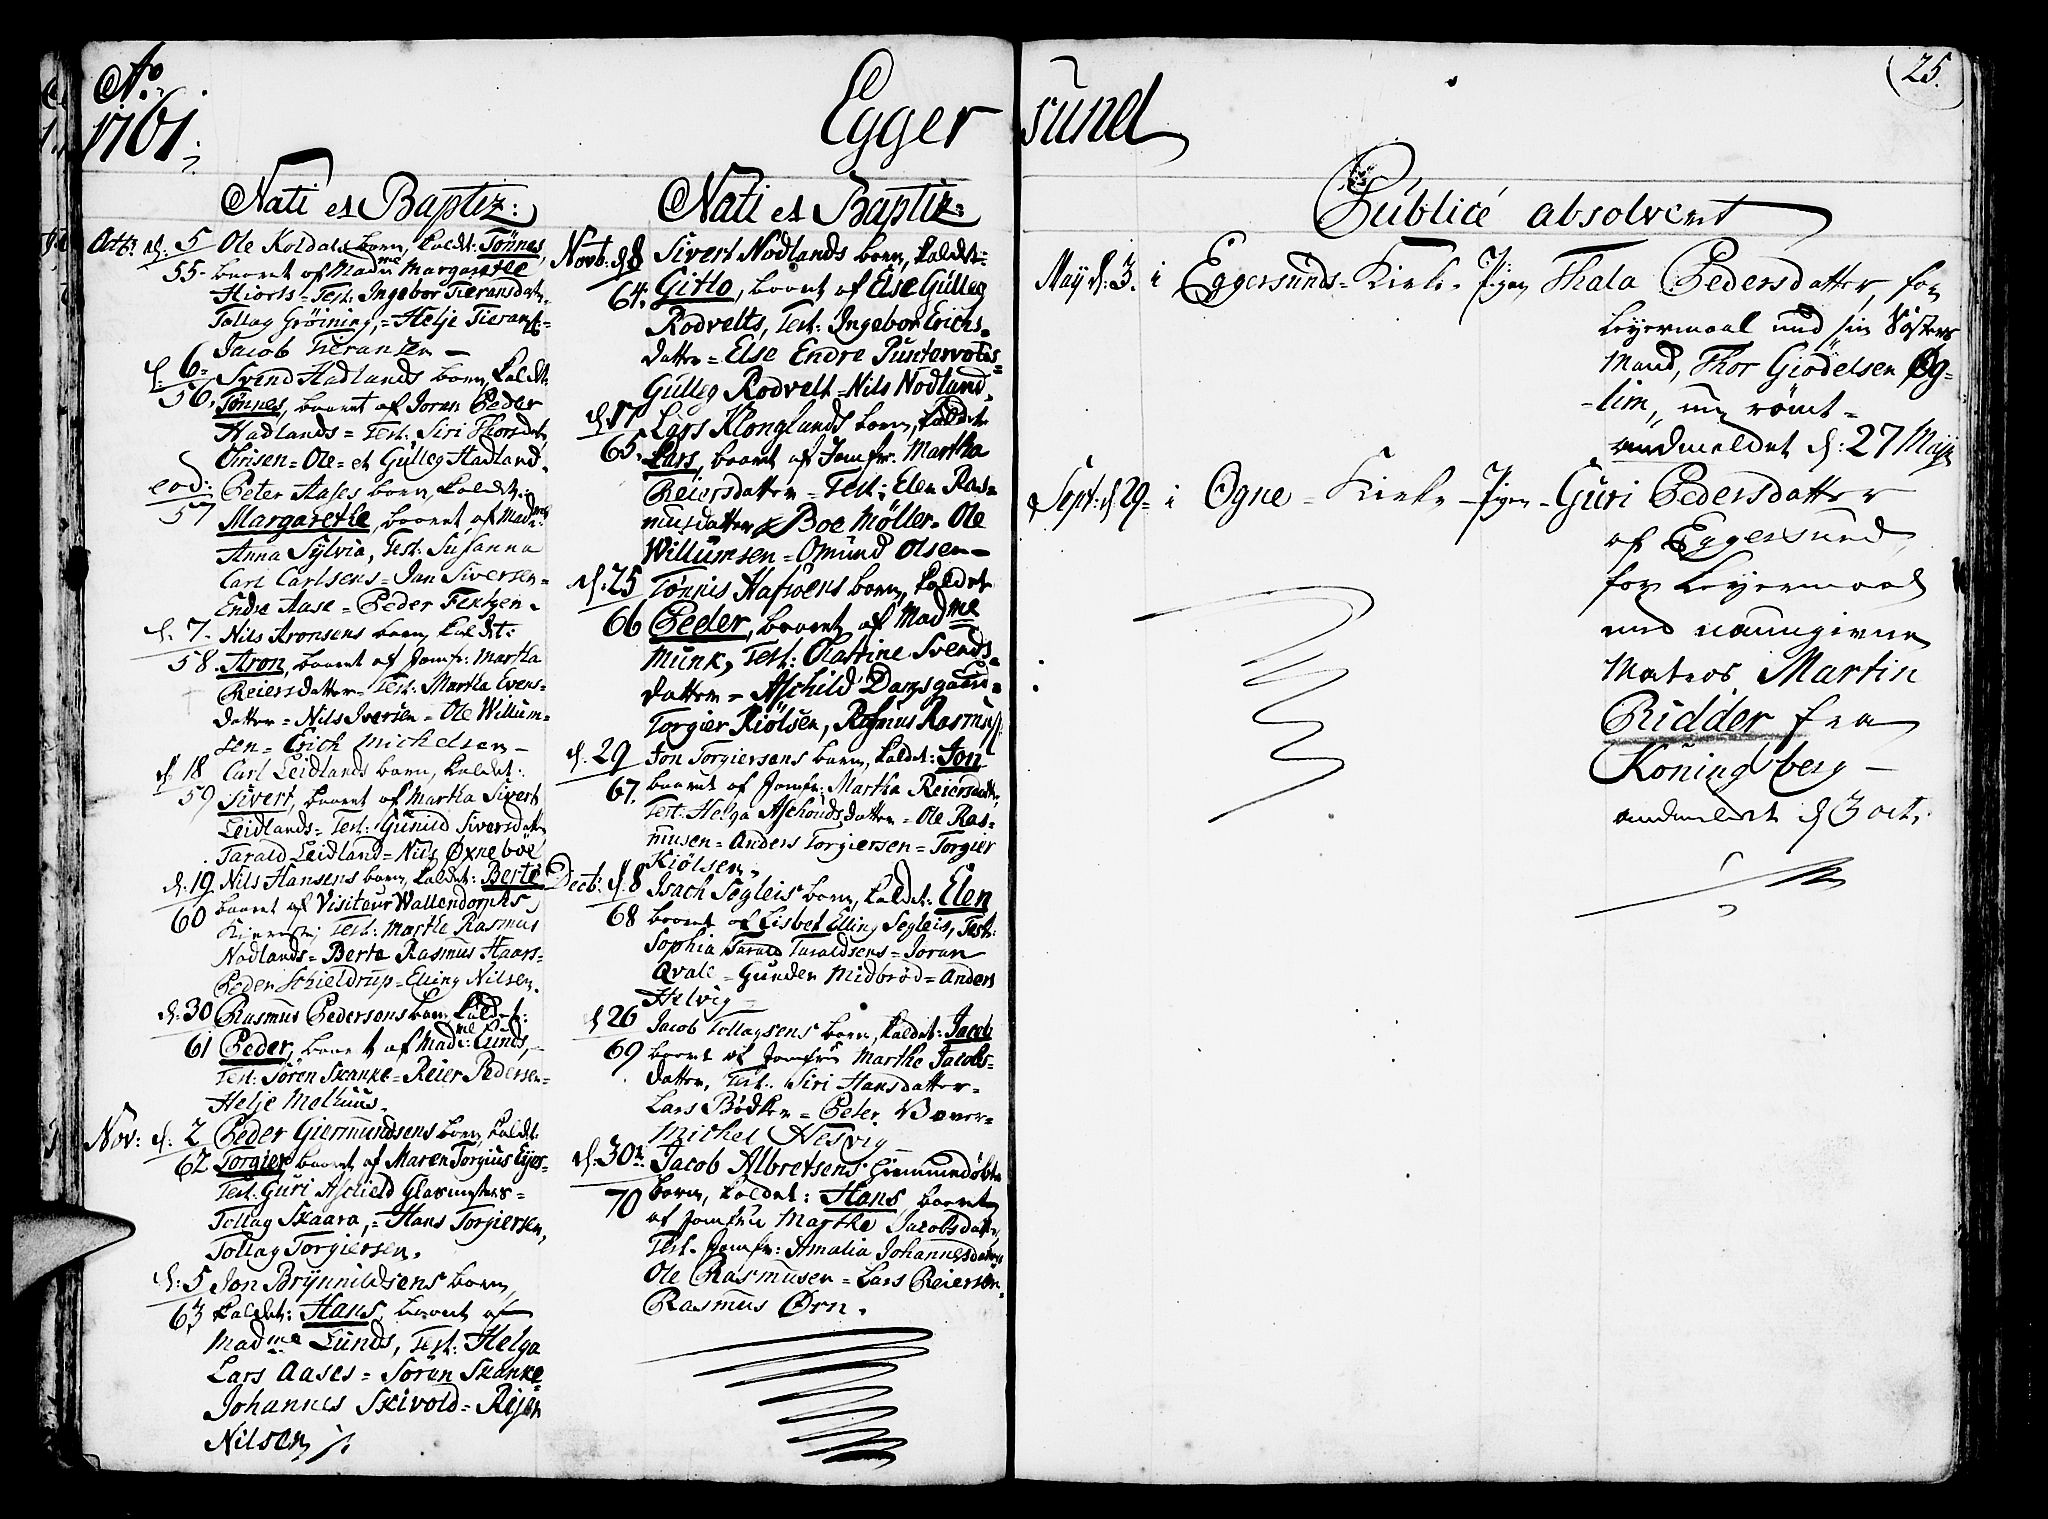 Ao
1761.
Egger sund
25.
Nati et Baptiz:
Octb: d. 5 Ole Koldals barn, kaldet: Tönnes,
55. baaret af Madme Margarethe
Hiorts = Test: Ingebor Tieransdatr
Tollag Gröining, = Helje Tierans:=
Jacob Tieransen —
d. 6. Svend Hadlands barn, kaldet
56. Tønnes, baaret af Joren Peder
Hadlands = Test: Siri Thorsdatr,
Ole = et Gulleg Hadland.
eod: Peter Aases barn, kaldet:
57 Margarethe, baaret af Madme
Anna Sylvia, Test: Susanna
Carl Carlsens = Jan Siversen =
Endre Aase = Peder Fentzen.
d. 7. Nils Aronsens barn, kaldet:
58. Aron, baaret af Jomfr: Martha
Reiersdatter = Test: Martha Evens=
datter = Nils Iversen = Ole Willum=
sen = Erich Michelsen —
d. 18 Carl Leidlands barn, kaldet:
59 Sivert, baaret af Martha Sivert
Leidlands = Test: Gunild Siversdatter
Tarald Leidland = Nils Øxneböe
d. 19. Nils Hansens barn, kaldet: Berte
60 baaret af Visiteur Wallendorphs
Kiereste; Test: Marthe Rasmus
Nodlands = Berta Rasmus Haars=
Peder Schieldrup = Elling Nilsen.
d. 30 Rasmus Pedersens barn kaldet:
61 Peder, baaret af Madme: Lunds,
Test: Sören Skanke = Reier Pedersen =
Helje Molhuus.
Nov: d: 2 Peder Giermundsens barn, kaldet
62 Torgier, baaret af Maren Torgius Eyes=
Test: Guri Aschield Glasmesters =
Tollag Skaara, = Hans Torgiersen,
Tollag Torgiersen.
d: 5 Jon Brynnildsens barn,
63 kaldet: Hans, baaret af
Madme Lunds, Test: Helga
Lars Aases = Sören Skanke
Johannes Skivold = Rejer
Nilsen
Nati et Baptiz:
Novb: d. 8 Sivert Nodlands barn, kaldet:
64. Gitlo, baaret af Else Gulleg
Rodvelts, Test: Ingebor Erichs=
datter = Else Endre Puntervolds=
Gulleg Rodvelt = Nils Nodland.
d. 17 Lars Klonglands barn, kaldet
65. Lars, baaret af Jomfr. Martha
Reiersdatter = Test: Elen Ras=
musdatter & Boe Møller = Ole
Willumsen = Omund Olsen —
d. 25 Tønnis Hafsoens barn, kaldet
66 Peder, baaret af Madme
Munk, Test: Catrine Svends=
datter = Aschild Damsgaard =
Torgier Kiölsen, Rasmus Rasmus:
d. 29 Jon Torgiersens barn, kaldet: Jon
67. baaret af Jomfr: Martha Reiersdatr,
Test: Helga Aschouds datter = Ole Ras=
musen = Anders Torgiersen = Torgier
Kiölsen.
Decb: d. 8 Isach Segleis barn, kaldet: Elen
68 baaret af Lisbet Elling Segleis, Test:
Sophia Tarald Taraldsens = Joran
Qvale = Gunder Midbrød = Anders
Helvig —
d 26 Jacob Tollagsens barn, kaldet: Jacob
69 baaret af Jomfru Marthe Jacobs=
datter, Test: Siri Hansdatter =
Lars Bødker = Peter Bover =
Michel Hesvig —
d. 30. Jacob Albretsens hiemmedøbte
70 barn, kaldet: Hans, baaret
af Jomfru Marthe Jacobsdatter,
Test. Jomfr: Amalia Johannesdatter
Ole Rasmusen = Lars Reiersen.
Rasmus Ørn.
Publicé absolvert
May d. 3. i Eggersunds = Kirke = Pigen Thala Pedersdatter, for
Leyermaal med sin Søsters
Mand, Thor Giödelsen Øg=
=lim, nu römt =
andmeldet d: 27 May
Sept: d 29 = i Ogne = Kirke = Pigen = Guri Pedersdatter
af Eggersund,
for Leyermaal
med naungivne
Matros Martin
Ridder fra
Königsberg —
andmeldet d 3 oct.